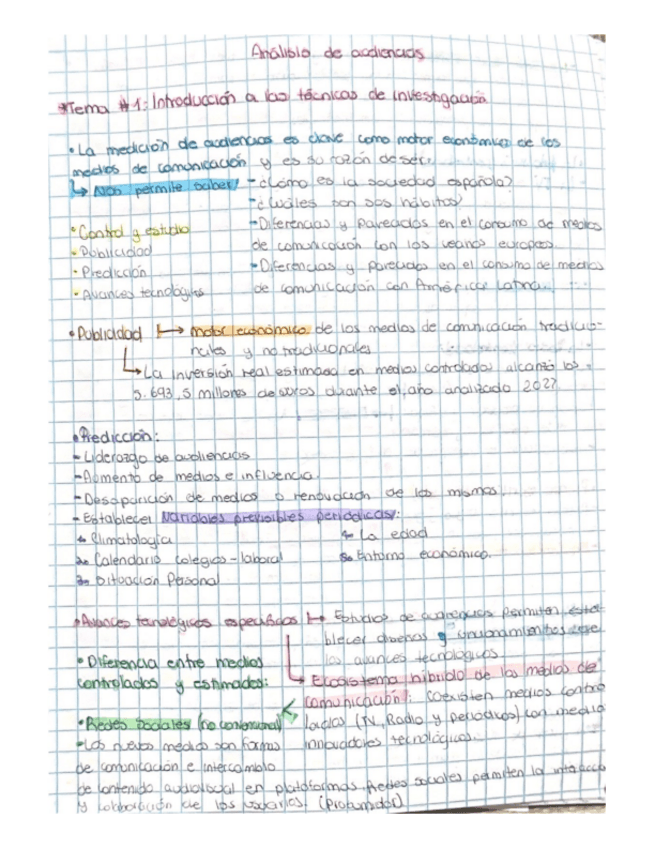 Análisis de audiencias
*Tema #1: Introducción a las técnicas de investigación
• La medición de audiencias es clave como motor económico de los
medios de comunicación y es su razón de ser.
↳ Nos permite saber: - ¿Cómo es la sociedad española?
- ¿Cuáles son sus hábitos?
• Control y estudio
- Diferencias y parecidos en el consumo de medios
• Publicidad
de comunicación con los vecinos europeos
• Predicción
- Diferencias y parecidos en el consumo de medios
• Avances tecnológicos
de comunicación con América Latina.
• Publicidad ↦ motor económico de los medios de comunicación tradicio-
nales y no tradicionales
↳ La inversión real estimada en medios controlados alcanzó los
5.693,5 millones de euros durante el año analizado 2022
• Predicción:
- Liderazgo de audiencias
- Aumento de medios e influencia.
- Desaparición de medios o renovación de los mismos.
- Establecer variables previsibles periódicas:
1. Climatología
4. La edad
2. Calendario colegios-laboral
5. Entorno económico.
3. Situación Personal
• Avances tecnológicos específicos ↦ Estudios de audiencias permiten esta
blecer
los avances tecnológicos
• Diferencia entre medios
controlados y estimados:
→ Ecosistema híbrido de los medios de
comunicación: Coexisten medios contro
• Redes Sociales (no convencional)
lados (TV, Radio y periódicos) con medio
- Los nuevos medios son formas
innovadores tecnológicos.
de comunicación e intercambio
de contenido audiovisual en plataformas. Redes sociales permiten la interacc
y colaboración de los usuarios. (Profundidad)